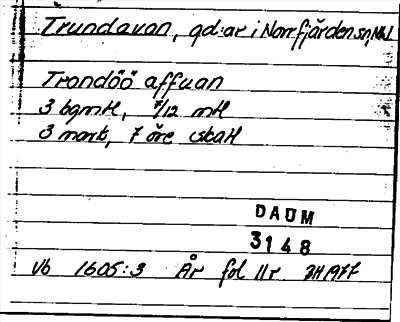 Trundavan, gd:ar i Norrfjärden sn, Nbl
Trondöö affuan
3 bgmtl, 7/12 mtl
3 mark, 7 öre skatt
DAUM
3148
Vb 1605:3 År fol 11r ZH1977